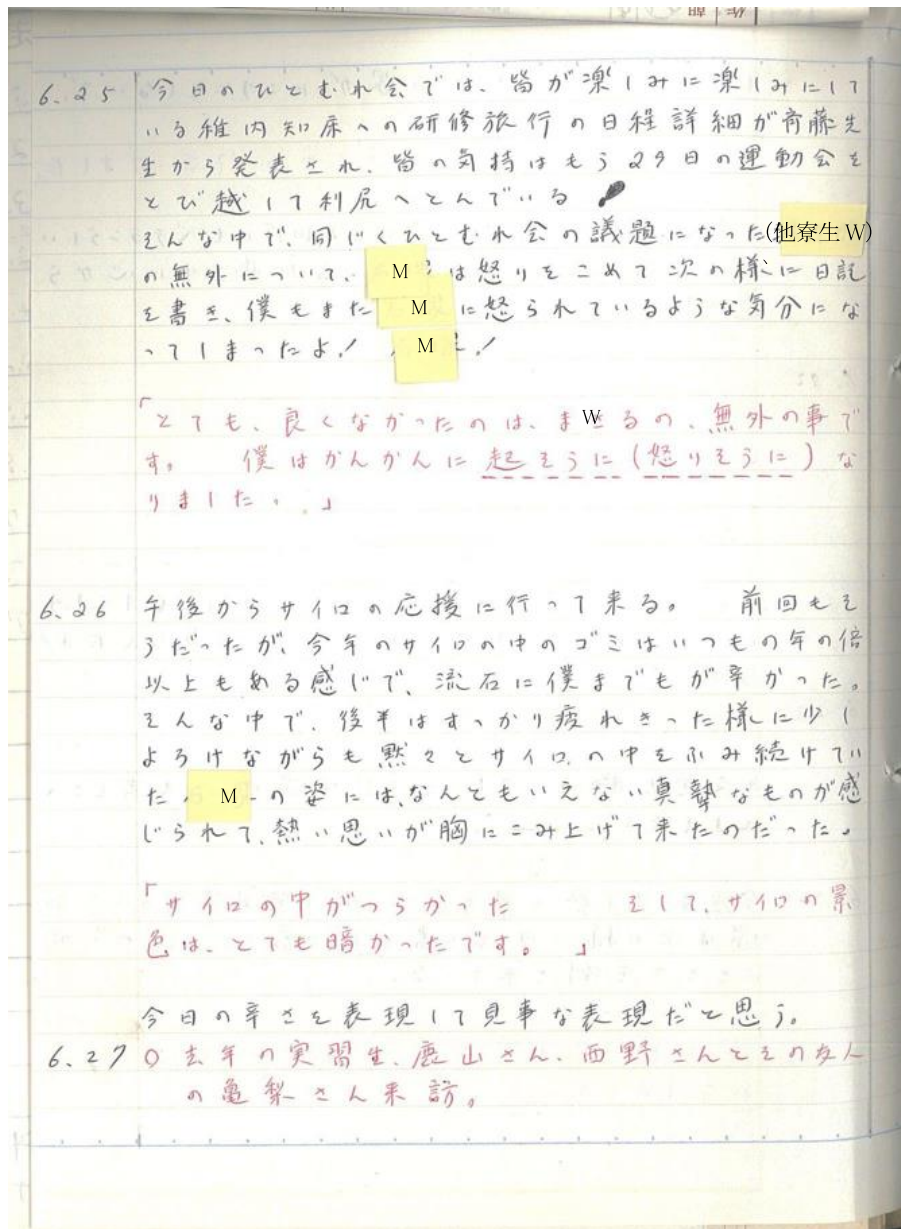 6.25 今日のひとむれ会では、皆が楽しみに楽しみにして
いる稚内知床への研修旅行の日程詳細が斉藤先
生から発表され、皆の気持はもう29日の運動会を
とび越して利尻へとんでいる!
そんな中で、同じくひとむれ会の議題になった(他寮生W)
の無外について、Mは怒りをこめて次の様に日記
を書き、僕もまたMに怒られているような気分にな
ってしまったよ! M!
「とても、良くなかったのは、まWるの、無外の事で
す。 僕はかんかんに起そうに(怒りそうに)な
りました。」
6.26 午後からサイロの応援に行って来る。 前回もそ
うだったが、今年のサイロの中のゴミはいつもの年の倍
以上もある感じで、流石に僕までもが辛かった。
そんな中で、後半はすっかり疲れきった様に少し
よろけながらも黙々とサイロの中をふみ続けてい
た、Mの姿には、なんともいえない真摯なものが感
じられて、熱い思いが胸にこみ上げて来たのだった。
「サイロの中がつらかった そして、サイロの景
色は、とても暗かったです。」
今日の辛さを表現して見事な表現だと思う。
6.27 ○去年の実習生、鹿山さん、西野さんとその友人
の亀梨さん来訪。